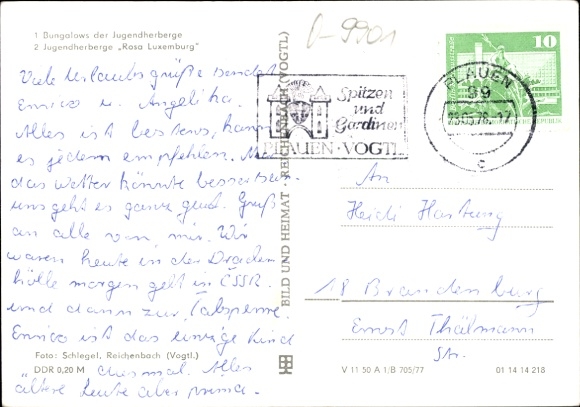 1 Bungalows der Jugendherberge
2 Jugendherberge „Rosa Luxemburg"
Viele Urlaubsgrüße sendet
Enrico u. Angelika.
Alles ist bestens, kann
es jedem empfehlen. Nur
das Wetter könnte besser sein.
uns geht es ganz gut. Gruß
an alle von mir. Wir
waren heute in der Drachen
höhle morgen geht in ČSSR
und dann zur Talsperre.
Enrico ist das einzige Kind
Foto: Schlegel, Reichenbach (Vogtl.)
DDR 0,20 M
diesmal. Alles
ältere Leute aber prima.
BILD UND HEIMAT · REICHENBACH (VOGTL)
6-9901
Spitzen
und
Gardinen
PLAUEN · VOGTL.
PLAUEN
99
c
10
An
Heidi Hartung
18 Brandenburg
Ernst Thälmann
Str.
V 11 50 A 1/B 705/77
01 14 14 218